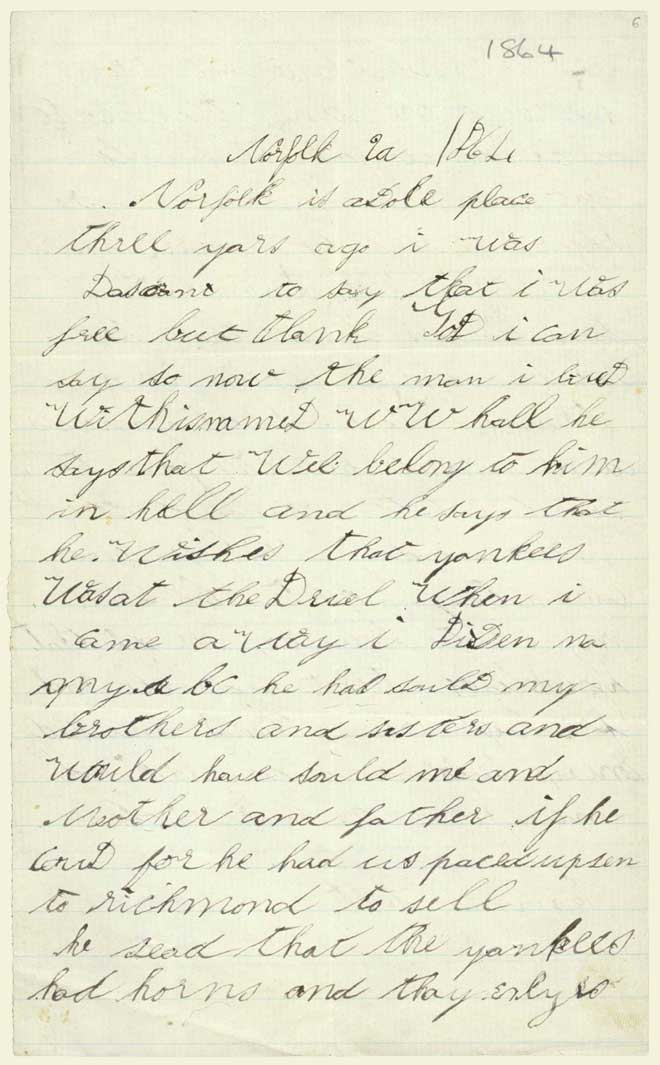 6
1864
Norfolk va 1864
Norfolk is a Dole place
three yars ago i was
to say that i was
free but thank God i can
say so now the man i
With is named W W hall he
says that Wee belong to him
in hell and he says that
he Wishes that yankees
Was at the Devel When i
came a Way i Diden no
my a b c he had sould my
brothers and sisters and
Would have sould me and
Mother and father if he
coud for he had us paced up sen
to richmond to sell
he sead that the yankees
had horns and thay